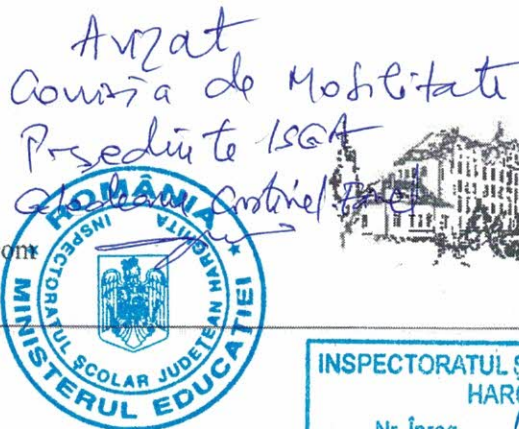 Avizat
Comisia de Mobilitate
Președinte ISGA
Cristinel
ROMÂNIA
MINISTERUL EDUCAȚIEI
INSPECTORATUL ȘCOLAR JUDEȚEAN HARGHITA
om
INSPECTORATUL Ș
HAR
Nr. Înreg.